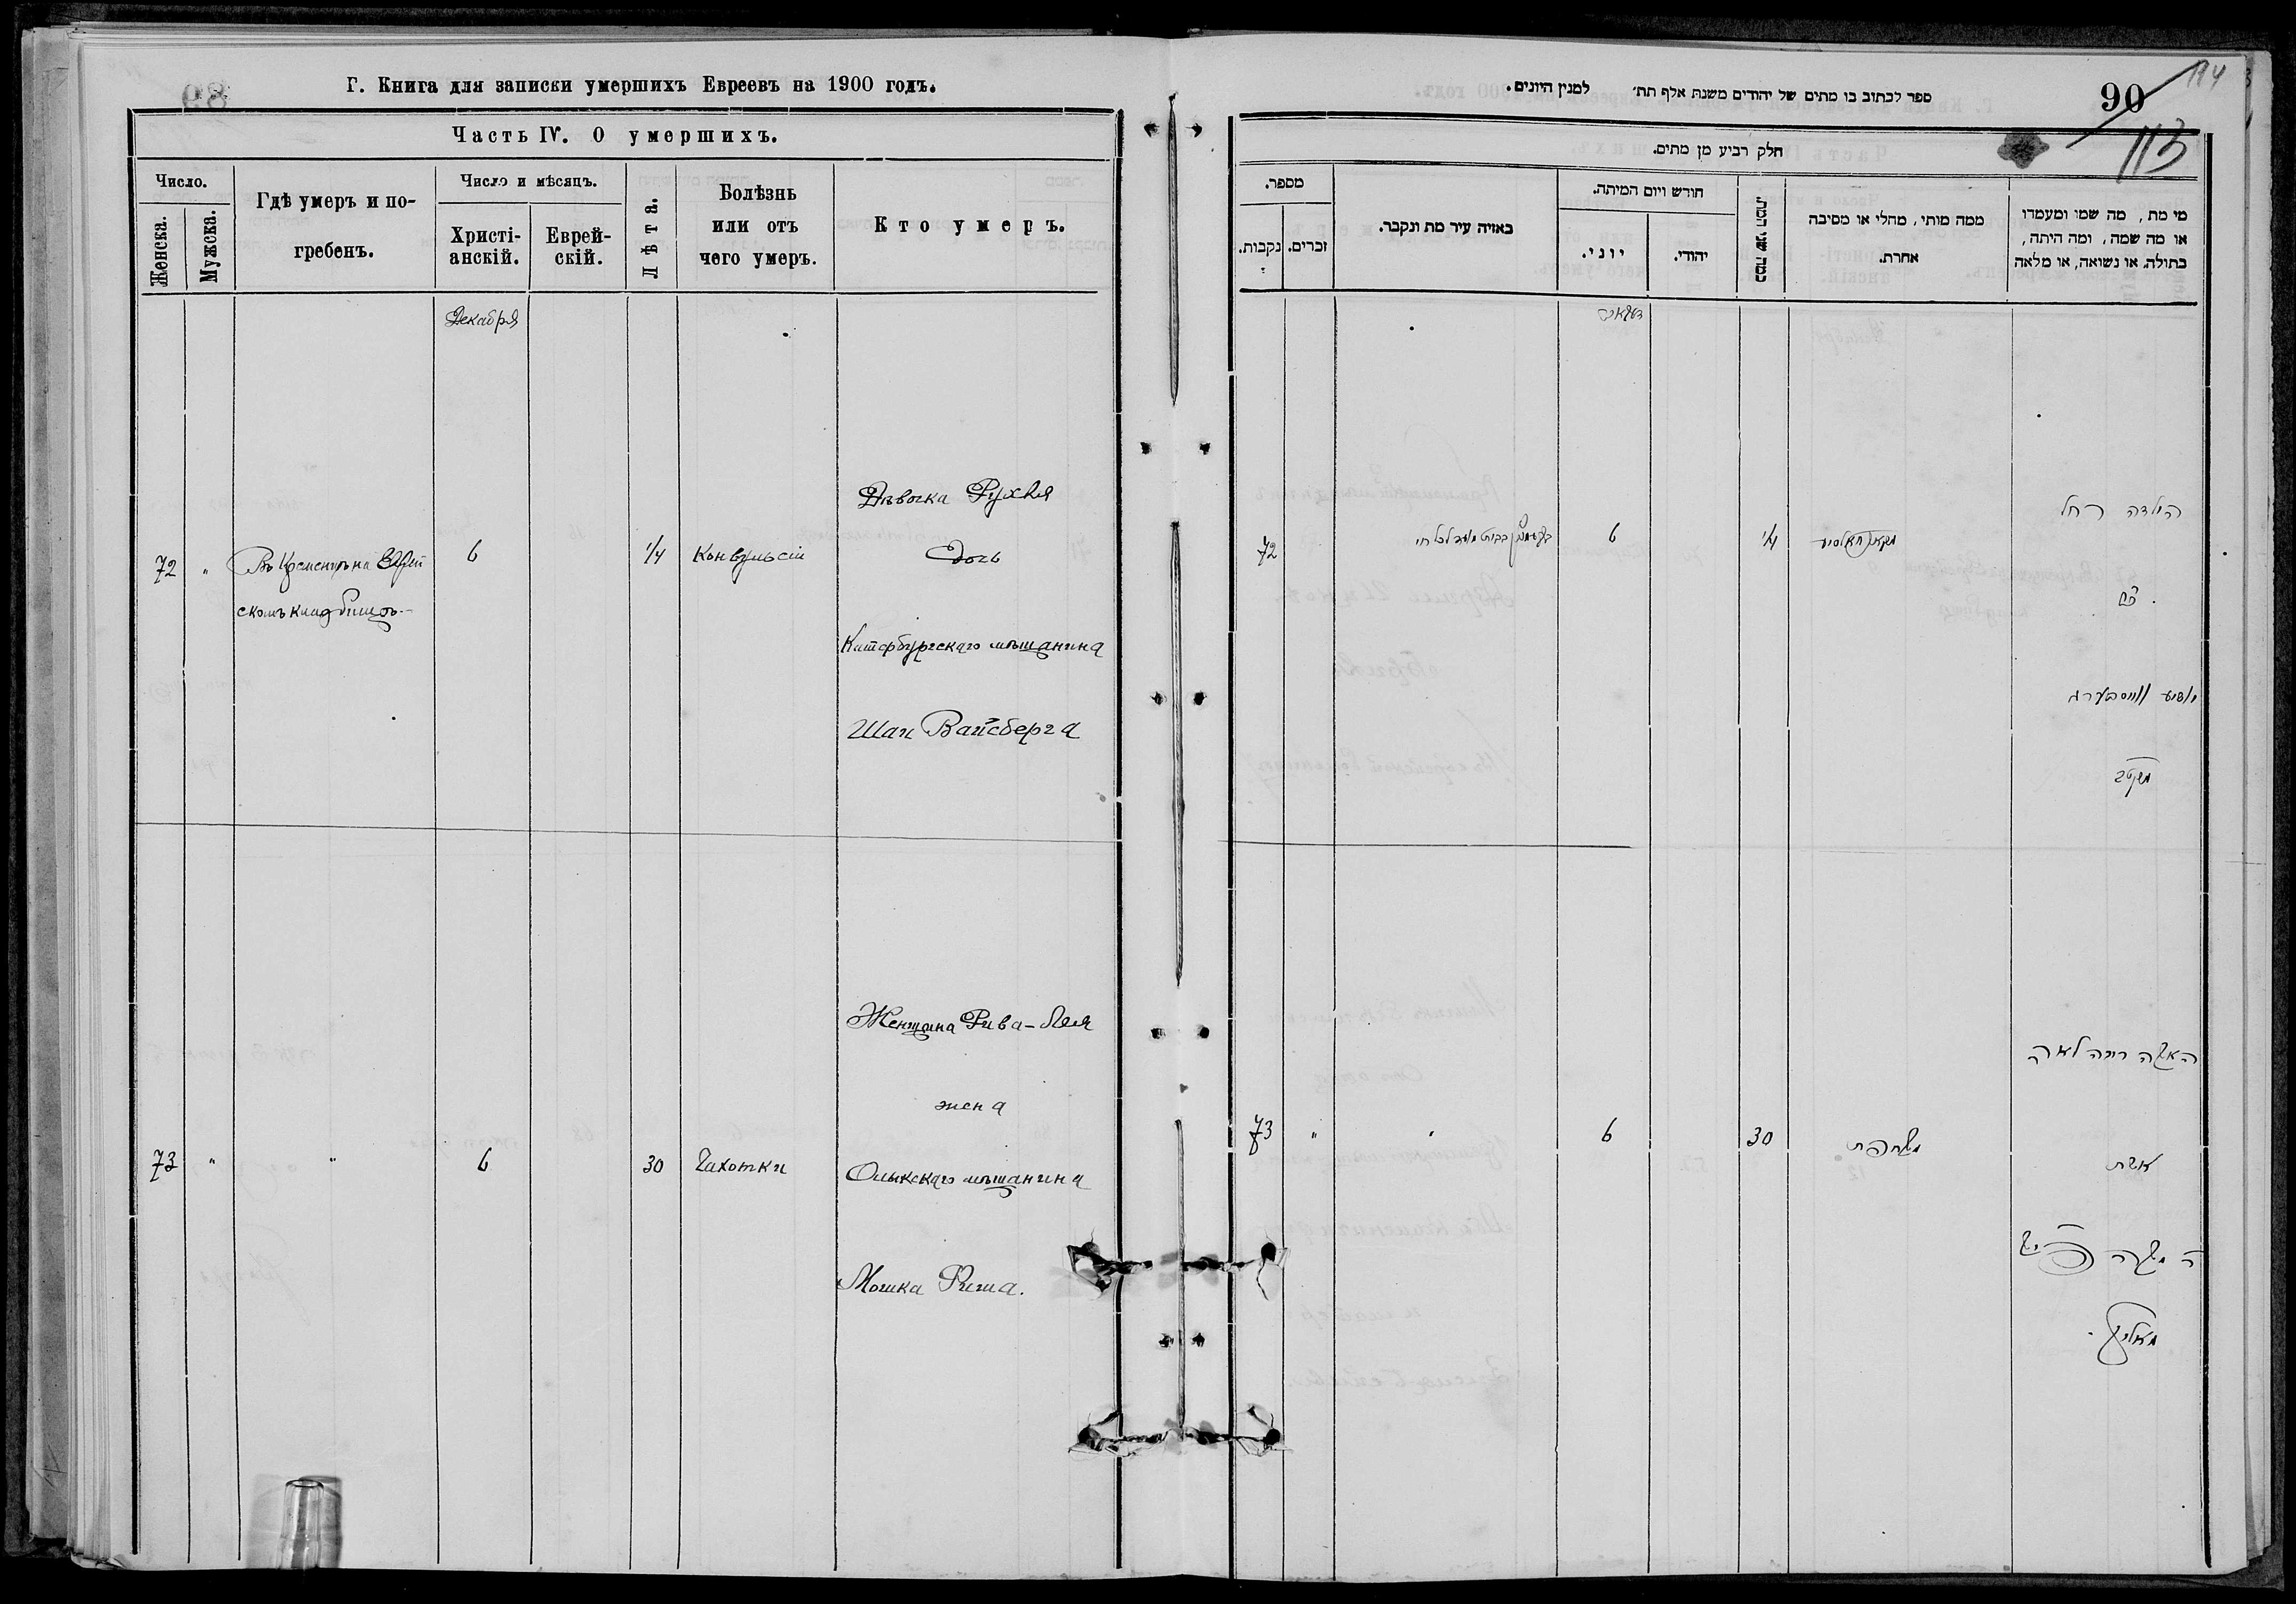 Г. Книга для записки умершихъ Евреевъ на 1900 годъ.
Часть IV. О умершихъ.
Число.
Женска.
Мужска.
Гдѣ умеръ и по-
гребенъ.
Число и мѣсяцъ.
Христі-
анскій.
Еврей-
скій.
Лѣта.
Болѣзнь
или отъ
чего умеръ.
Кто умеръ.
Декабря
72
"
Въ Кременцѣ на Еврей
скомъ кладбищѣ
6
1/4
Конвульсіи
Дѣвочка Рухля
дочь
Китербургскаго мѣщанина
Шаи Вайсберга
73
"
"
6
30
Чахотки
Женщина Рива-Лея
жена
Олыкскаго мѣщанина
Мошка Фиша.
ספר לכתוב בו מתים של יהודים משנת אלף תת׳ למנין היונים.
90
114
113
חלק רביע מן מתים.
מספר.
נקבות.
זכרים.
באיזה עיר מת ונקבר.
חודש ויום המיתה.
יוני.
יהודי.
כמה שני המת.
ממה מותי, מחלי או מסיבה
אחרת.
מי מת, מה שמו ומעמדו
או מה שמה, ומה היתה,
בתולה, או נשואה, או מלאה
דעקאבר
72
6
1/4
הילדה רחל
בת
ישעי׳ ווייסבערג
73
"
"
6
30
משחפת
האשה ריבה לאה
אשת
ה׳ משה פיש
מאליק